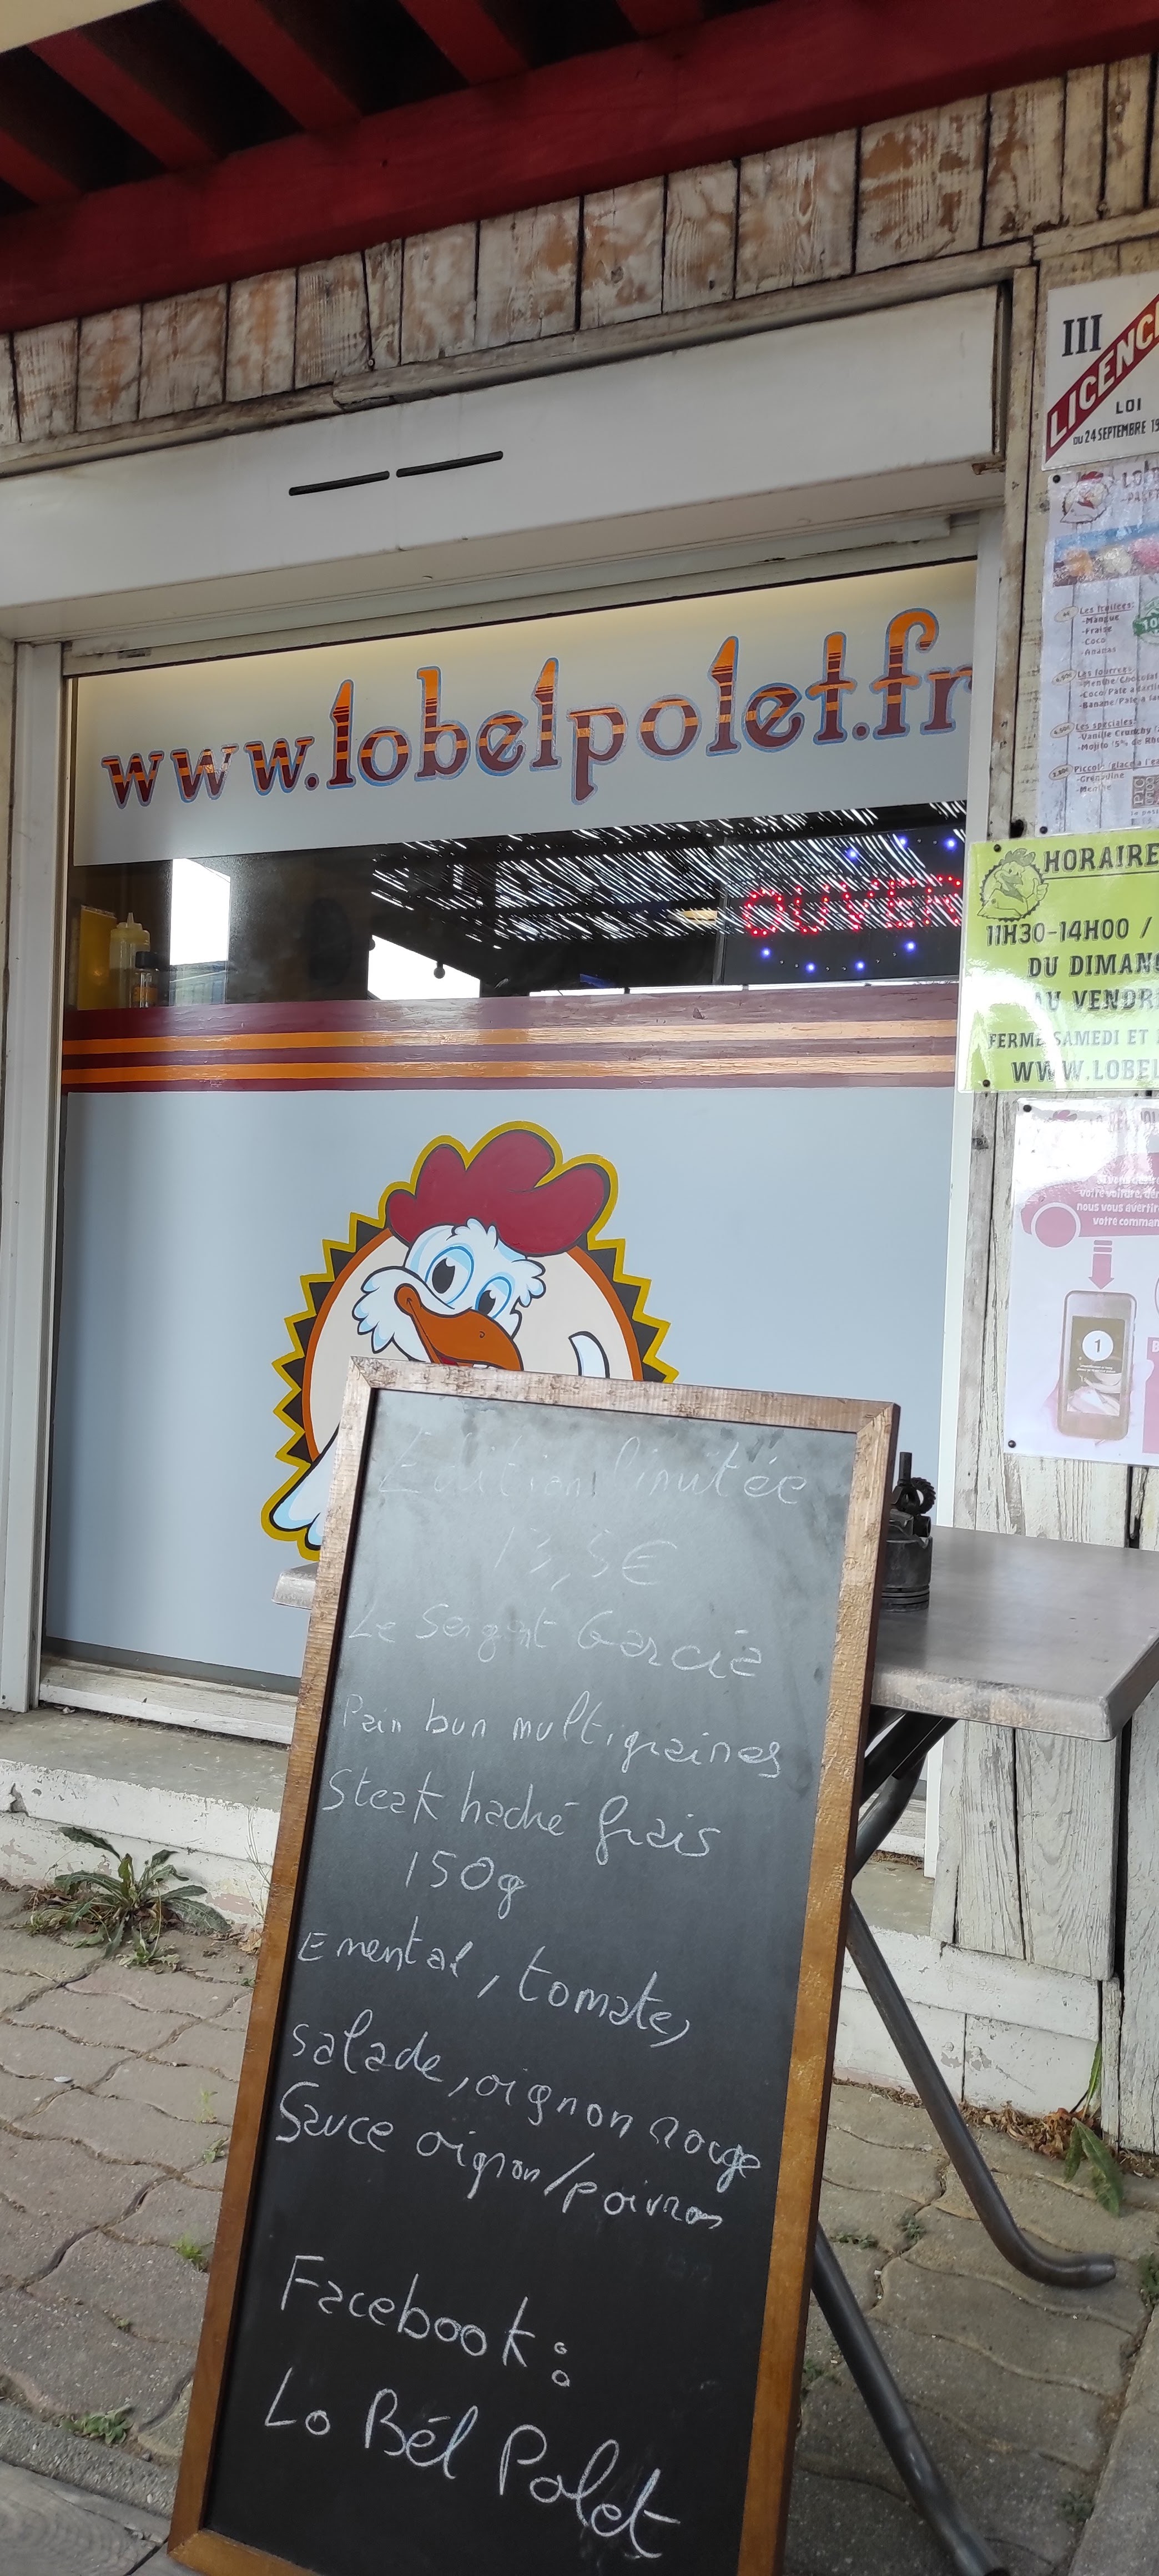 III
LICENC
LOI
DU 24 SEPTEMBRE 19
www.lobelpolet.fr
Les fruitées:
-Mangue
-Fraise
-Coco
-Ananas
Les fourrés:
-Menthe/Chocolat
-Coco/Pate
-Banane/Pate à
Les spéciales:
-Vanille Crunchy
-Mojito 5% de Rh
-Grenadine
-Menthe
OUVER
HORAIRE
11H30-14H00 /
DU DIMAN
AU VENDR
FERMÉ SAMEDI ET
WWW.LOBEL
votre voiture,
nous vous avertir
votre comman
1
Edition limitée
13,5€
Le Sergent Garcia
Pain bun multigraines
Steak haché frais
150g
Emental, tomate,
salade, oignon rouge
Sauce oignon/poivron
Facebook:
Lo Bél Polet